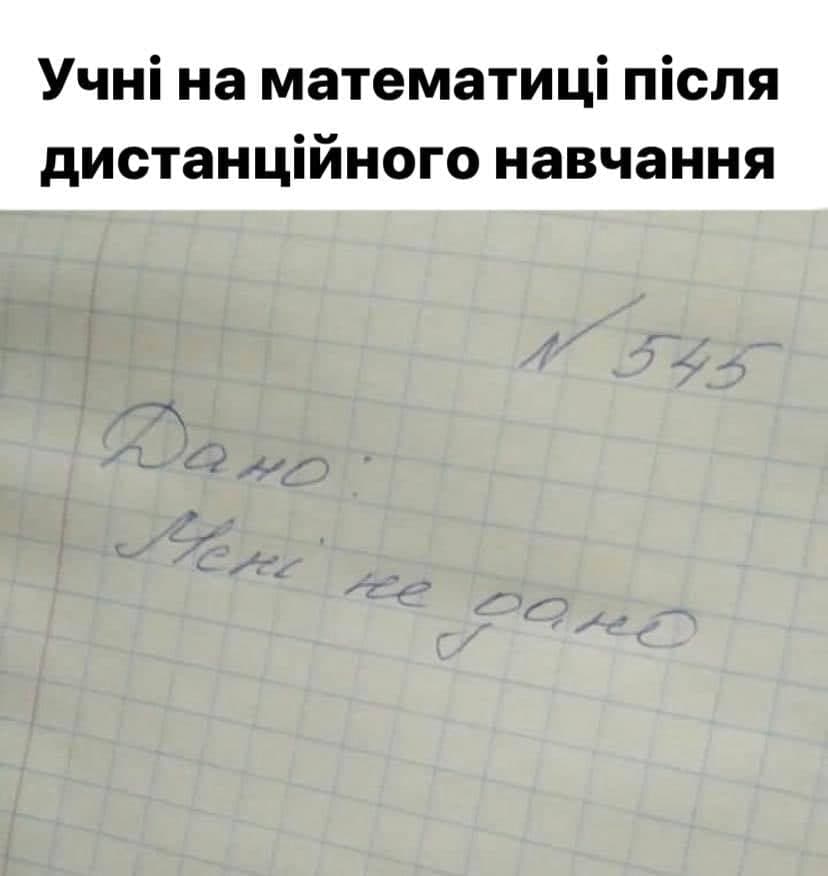 Учні на математиці після
дистанційного навчання
№ 545
Дано:
Мені не дано